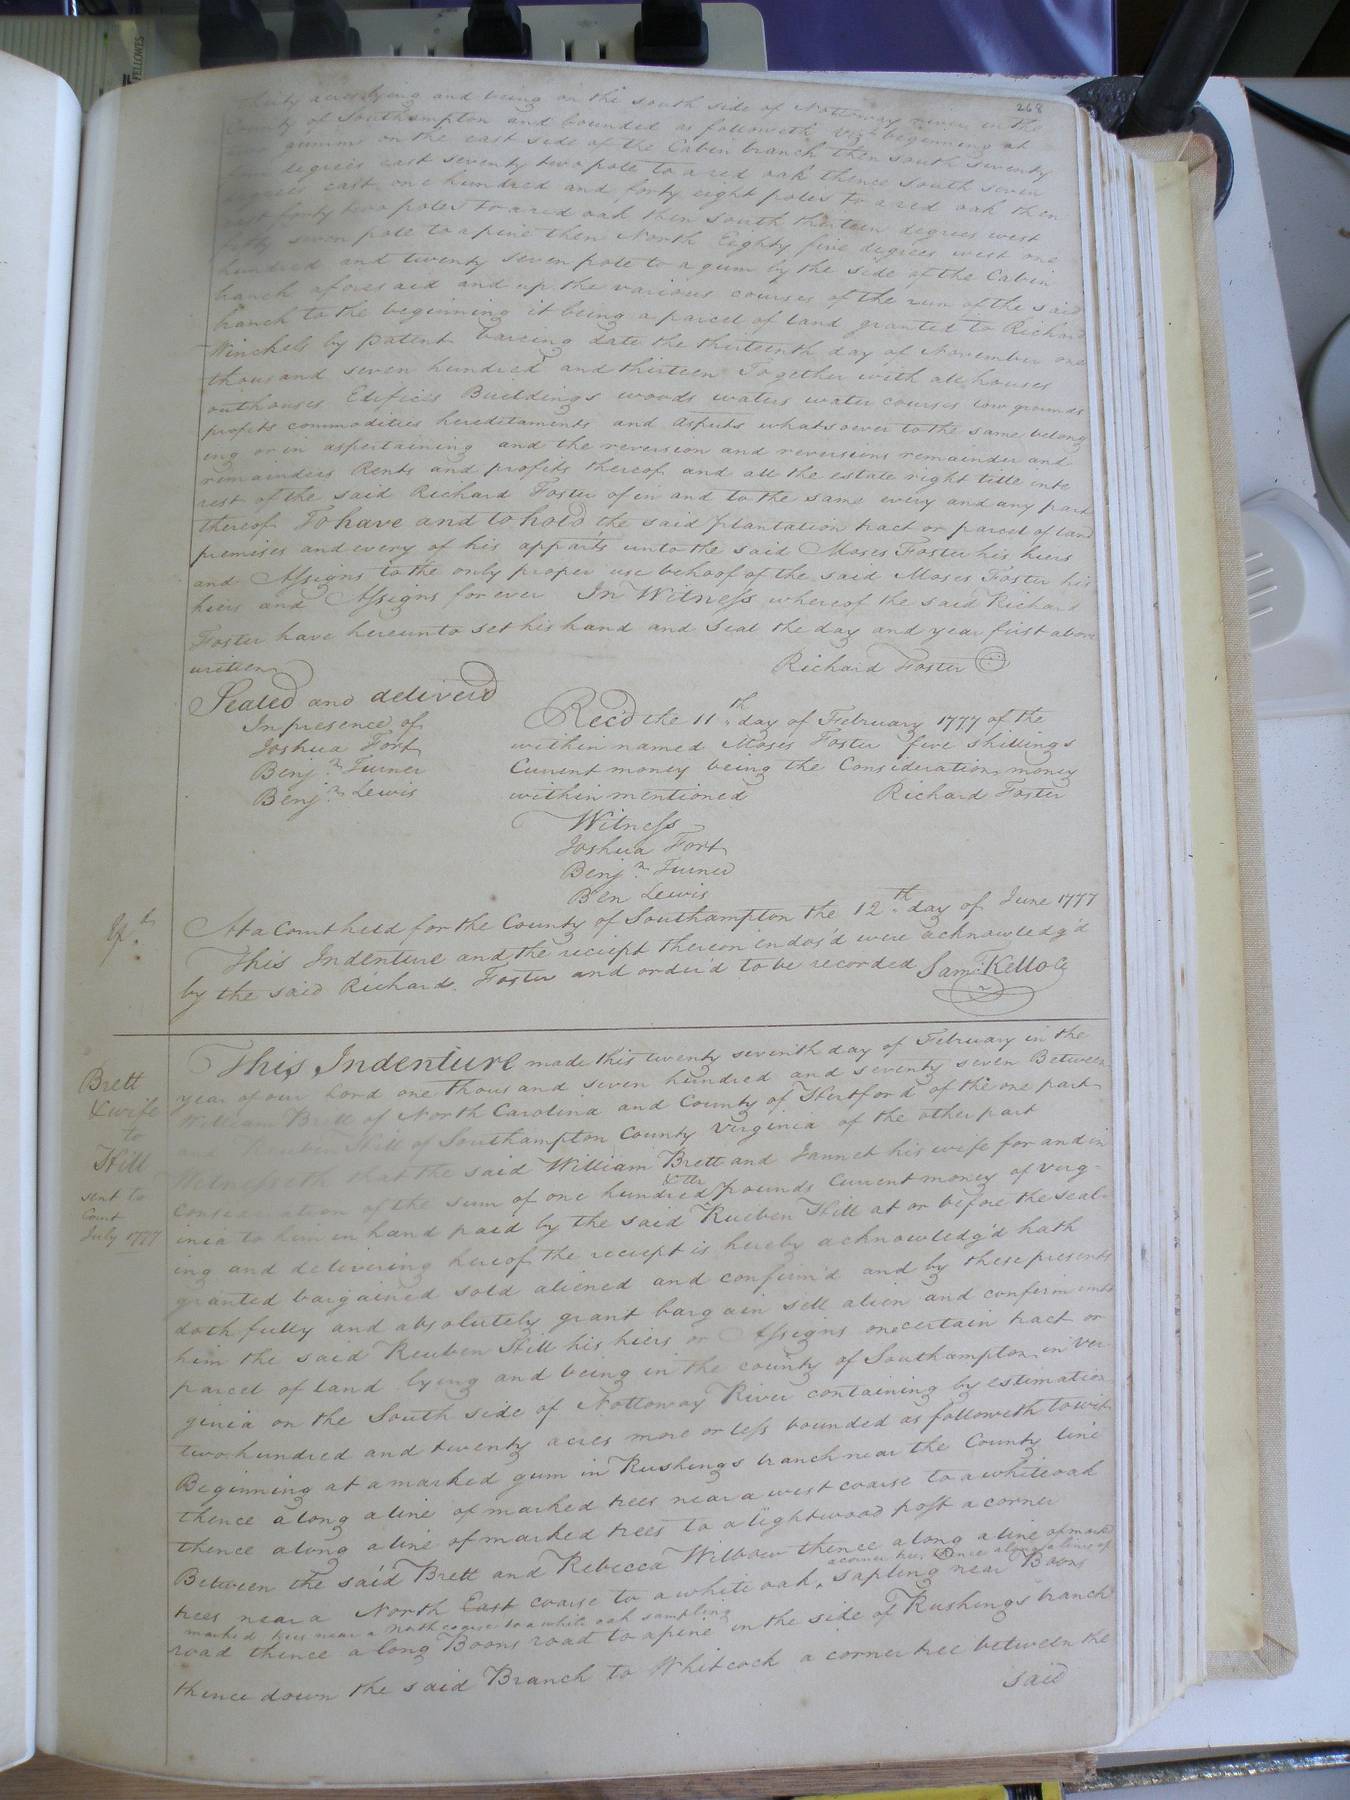 268
thirty acres lying and being on the south side of Nottoway river in the
County of Southampton and bounded as followeth vizt beginning at
gumm on the east side of the Cabin branch then south seventy
degrees east seventy two pole to a red oak thence south seven
degrees east one hundred and forty eight poles to a red oak then
east forty two poles to a red oak then South thirteen degrees west
fifty seven pole to a pine then North Eighty five degrees west one
hundred and twenty seven pole to a gum by the side of the Cabin
branch aforesaid and up the various courses of the run of the said
branch to the beginning it being a parcel of land granted to Richard
Winckels by patent bearing date the thirteenth day of November one
thousand seven hundred and thirteen Together with all houses
outhouses Edifices Buildings woods waters water courses low grounds
profits commodities hereditaments and Aspurts whatsoever to the same belong
ing or in aspertaining and the reversion and reversions remainder and
remainders Rents and profits thereof and all the estate right title inte
rest of the said Richard Foster of in and to the same every and any part
thereof To have and to hold the said plantation tract or parcel of land
premises and every of his appurts unto the said Moses Foster his hiers
and Assigns to the only proper use behoof of the said Moses Foster his
hiers and Assigns for ever In Witness whereof the said Richard
Foster have hereunto set his hand and Seal the day and year first above
written
Richard Foster
Sealed and deliverd
In presence of
Joshua Fort
Benj.n Turner
Benj.n Lewis
Rec'd the 11th day of February 1777 of the
within named Moses Foster five shillings
Current money being the Consideration money
within mentioned Richard Foster
Witness
Joshua Fort
Benj.n Turner
Ben Lewis
At a Court held for the County of Southampton the 12th day of June 1777
This Indenture and the reciept thereon indos'd were acknowledg'd
by the said Richard Foster and order'd to be recorded Sam.l Kello C
Brett
& wife
to
Hill
sent to
Court
July 1777
This Indenture made this twenty seventh day of February in the
year of our Lord one thousand seven hundred and seventy seven Between
William Brett of North Carolina and County of Hertford of the one part
and Reuben Hill of Southampton County Virginia of the other part
Witnesseth that the said William Brett and Jannet his wife for and in
consideration of the sum of one hundred pounds Current money of Virg-
inia to him in hand paid by the said Rueben Hill at or before the seal-
ing and delivering hereof the reciept is hereby acknowledg'd hath
granted bargained sold aliened and confirm'd and by these presents
doth fully and absolutely grant bargain sell alien and confirm unto
him the said Reuben Hill his hiers or Assigns one certain tract or
parcel of land lying and being in the county of Southampton in Ver-
ginia on the South side of Nottoway River containing by estimation
two hundred and twenty acres more or less bounded as followeth towit
Beginning at a marked gum in Rushings branch near the County line
thence along a line of marked trees near a west coarse to a white oak
thence along a line of marked trees to a lightwood post a corner
Between the said Brett and Rebecca Wilbow thence along a line of mark'd
trees near a North East coarse to a white oak, a corner tree thence along a line of
marked trees near a North coarse to a white oak sampling sapling near Boons
road thence along Boons road to a pine in the side of Rushings branch
thence down the said Branch to Whitcock a corner tree between the
said